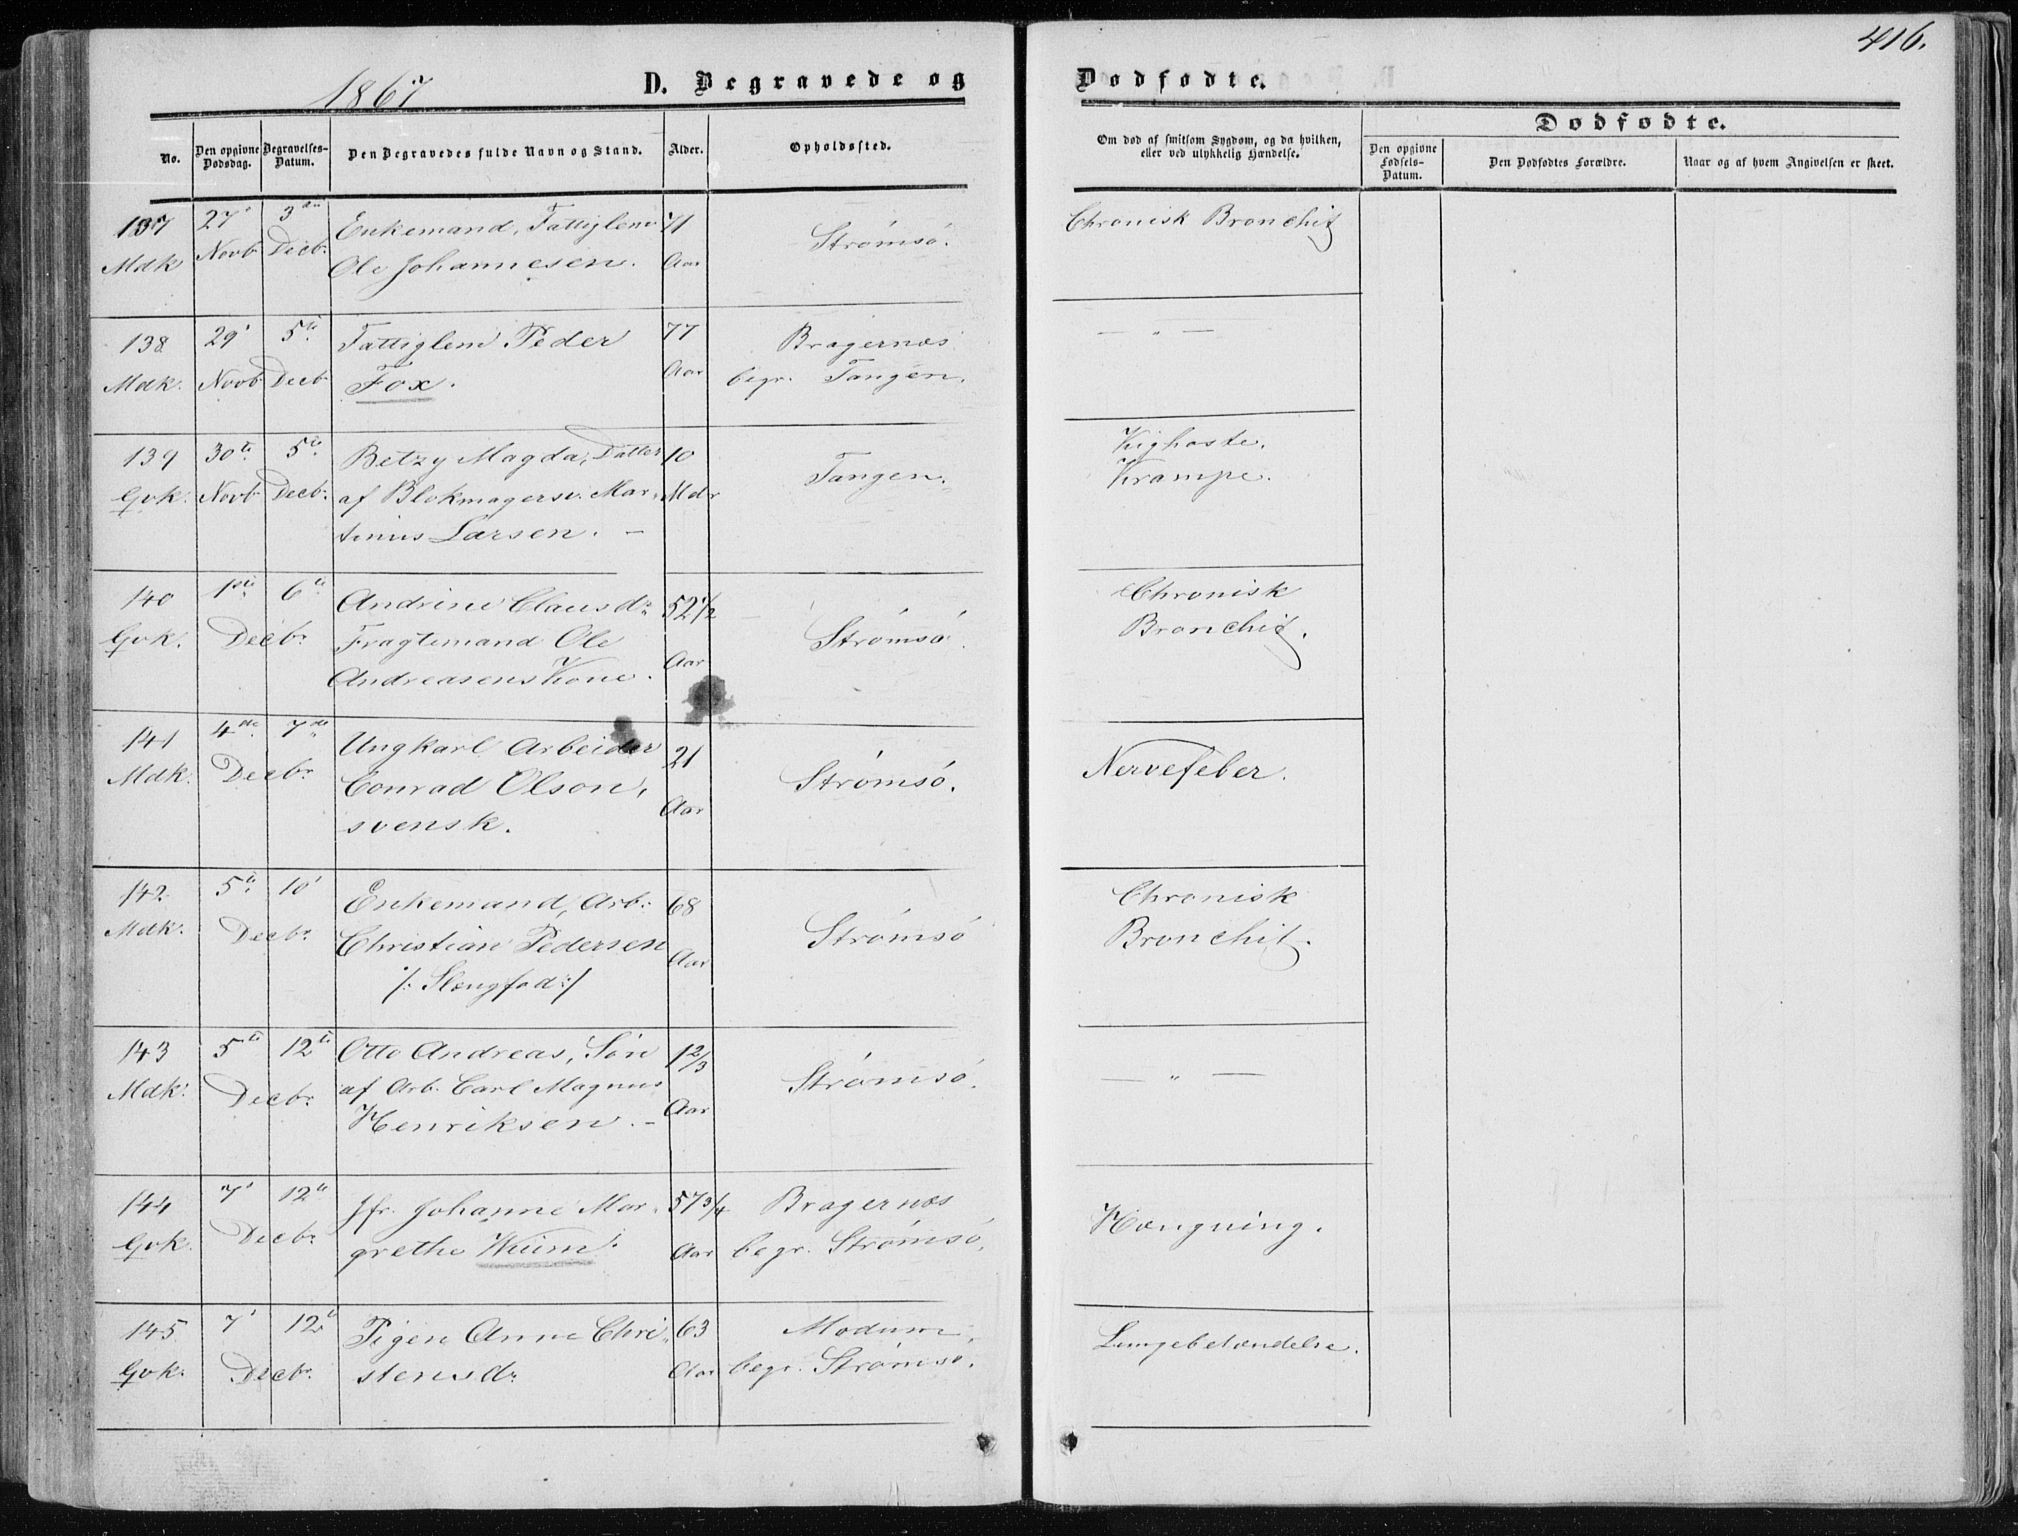 416.
1867
D. Begravede og
Dødfødte.
No.
Den opgivne Dødsdag.
Begravelses-Datum.
Den Begravedes fulde Navn og Stand.
Alder.
Opholdssted.
Om død af smitsom Sygdom, og da hvilken,
eller ved ulykkelig Hændelse.
Dødfødte.
Den opgivne Fødsels-Datum.
Den Dødfødtes Forældre.
Naar og af hvem Angivelsen er skeet.
137 27' 3die Enkemand, Fattiglem 71 Strømsø. Chronisk Bronchit
Mdk Novb Decb: Ole Johannesen. Aar
138 29' 5te Fattiglem Peder 77 Bragernæs — " —
Mdk. Novb Decb Fox. Aar begr. Tangen.
139 30te 5te Betzy Magda, Datter 10 Tangen. Kighoste.
Gvk. Novb Decb: af Blokmagersv. Mar- Mdr Krampe.
tinius Larsen. —
140 1ste 6te Andrine Clausdr 52 1/2 Strømsø. Chronisk
Gvk. Decbr. Fragtemand Ole Aar Bronchit.
Andreasens Kone.
141 4de 7de Ungkarl Arbeider 21 Strømsø. Nervefeber.
Mdk. Decbr. Conrad Olson, Aar
svensk.
142 5te 10' Enkemand, Arb: 68 Strømsø Chronisk
Mdk. Decbr. Christian Pedersen Aar Bronchit.
/: Slengfod :/
143 5te 12te Otto Andreas, Søn 1 2/3 Strømsø. — " —
Mdk: Decbr. af Arb. Carl Magnus Aar
Henriksen. —
144 7' 12te Jfr. Johanne Mar- 57 3/4 Bragernæs Hængning.
Gvk. Decbr. grethe Wium. Aar begr. Strømsø.
145 7' 12te Pigen Anne Chri- 63 Modum, Lungebetændelse.
Gvk. Decbr. stensdr Aar begr. Strømsø.